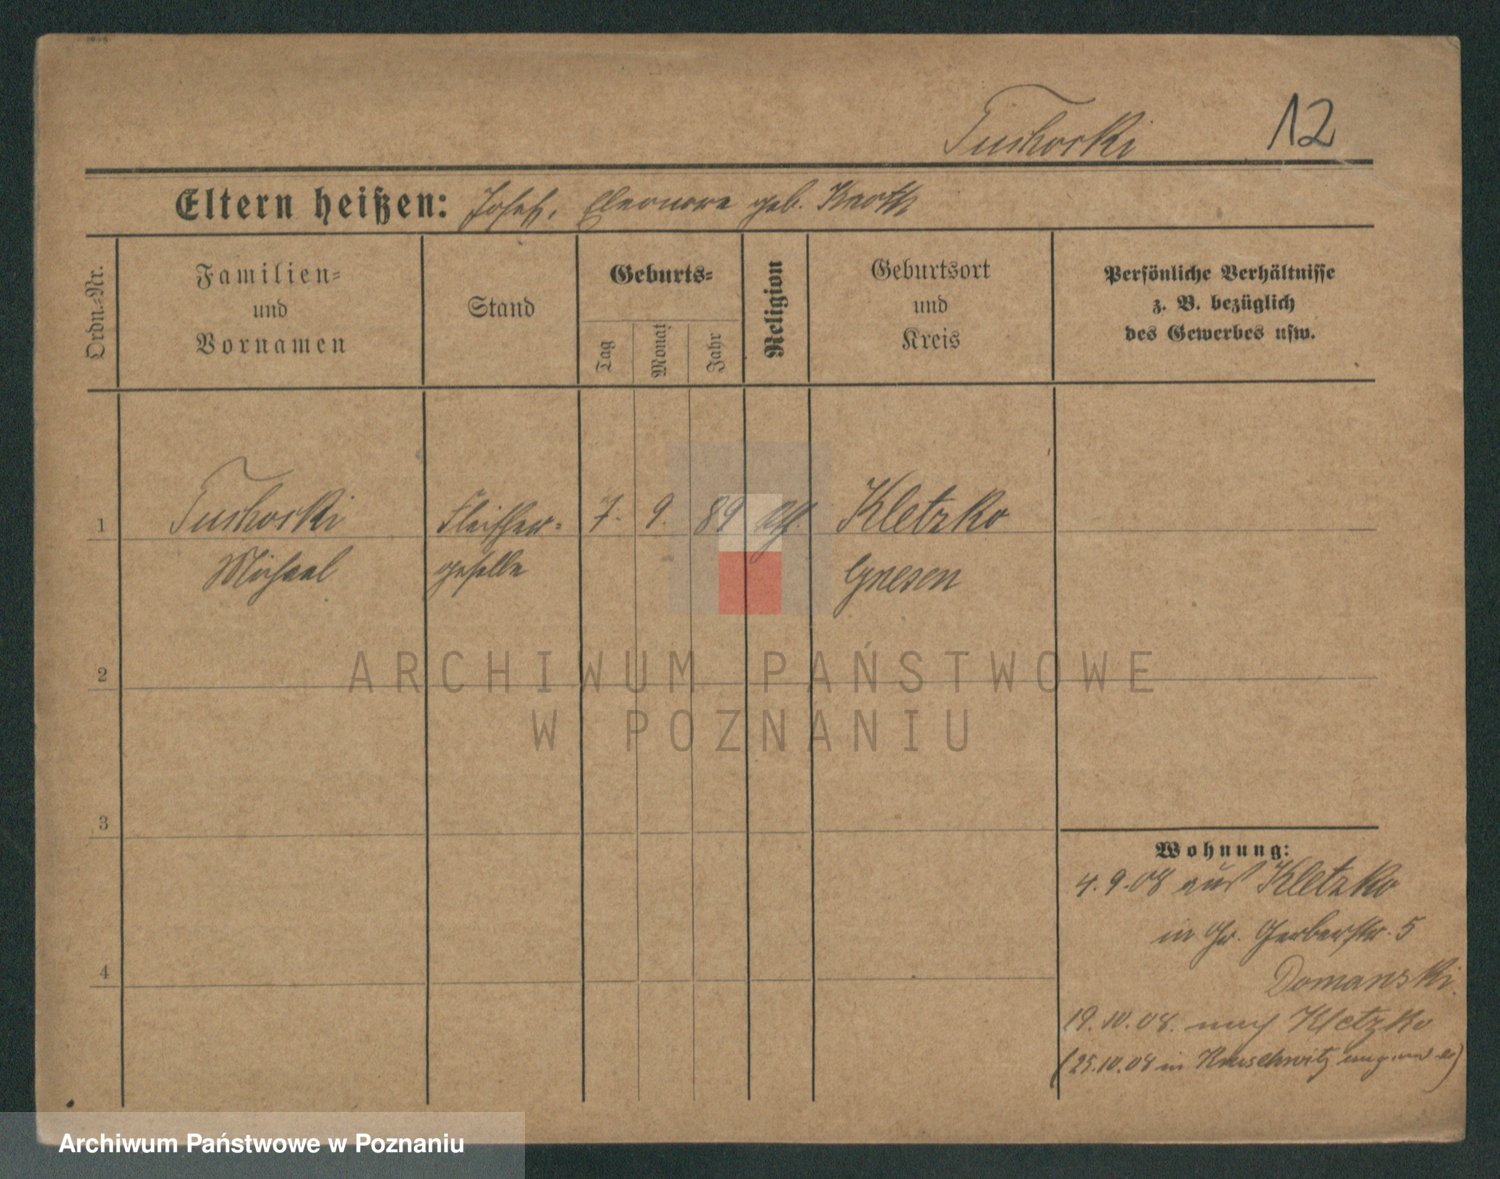 Tuchorski 12
Eltern heißen: Josef, Eleonore geb.
Ordn.-Nr.
Familien-
und
Vornamen
Stand
Geburts-
Tag
Monat
Jahr
Religion
Geburtsort
und
Kreis
Persönliche Verhältnisse
z. B. bezüglich
des Gewerbes usw.
1 Tuchorski Fleischer- 7. 9. 89 Kletzko
Michael geselle Gnesen
2
ARCHIWUM PAŃSTWOWE
W POZNANIU
3
Wohnung:
4.9.08 aus Kletzko
in Gr. Gerberstr. 5
4
Domanski.
19.10.08. nach Kletzko
(25.10.08 in Kruschwitz)
Archiwum Państwowe w Poznaniu